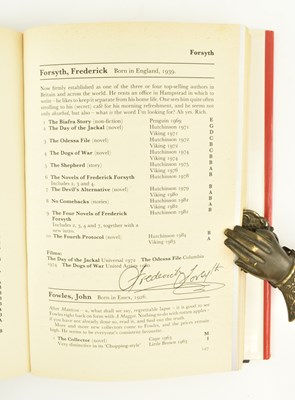 Forsyth
Forsyth, Frederick Born in England, 1939.
Now firmly established as one of the three or four top-selling authors in
Britain and across the world. He rents an office in Hampstead in which to
write - he likes to keep it separate from his home life. One sees him quite often
strolling to his (secret) café for his morning refreshment, and he seems not
only absorbed, but also - what is the word I'm looking for? Ah yes. Rich
1 The Biafra Story (non-fiction) Penguin 1969 E
2 The Day of the Jackal (novel) Hutchinson 1971 G
Viking 1971 D
3 The Odessa File (novel) Hutchinson 1972 C
Viking 1972 B
4 The Dogs of War (novel) Hutchinson 1974 C
Viking 1974 B
5 The Shepherd (story) Hutchinson 1975 B
Viking 1976 A
6 The Novels of Frederick Forsyth Hutchinson 1978 B
Includes 2, 3 and 4.
7 The Devil's Alternative (novel) Hutchinson 1979 B
Viking 1980 A
8 No Comebacks (stories) Hutchinson 1982 B
Viking 1982 A
9 The Four Novels of Frederick Hutchinson 1982 B
Forsyth
Includes 2, 3, 4 and 7, together with a
new intro.
10 The Fourth Protocol (novel) Hutchinson 1984 B
Viking 1984 A
Films:
The Day of the Jackal Universal 1973 The Odessa File Columbia
1974 The Dogs of War United Artists 1980
Frederick Forsyth
Fowles, John Born in Essex, 1926.
After Mantissa - a, what shall we say, regrettable lapse - it is good to see
Fowles right back on form with A Maggot. Nothing to do with rotten apples -
if you have not already done so, read it, and find out the truth.
More and more new collectors come to Fowles, and the prices remain
high. He seems to be everyone's common favourite.
1 The Collector (novel) Cape 1963 M
Very distinctive in its 'Chopping-style' Little Brown 1963 I